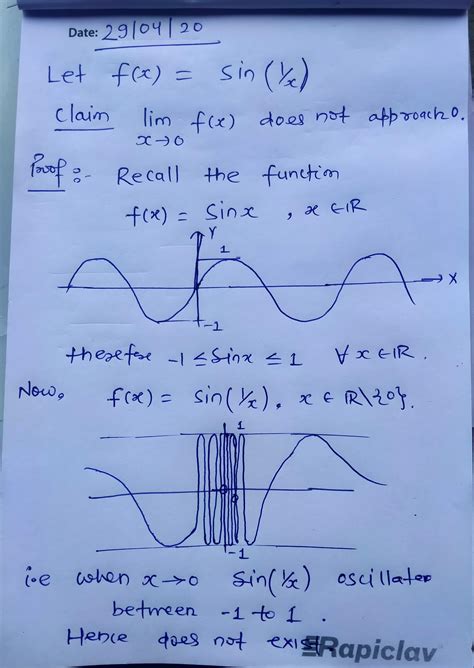 Date: 29/04/20
Let f(x) = sin (1/x)
Claim lim f(x) does not approach 0.
x→0
Proof :- Recall the function
f(x) = Sinx , x ∈ IR
Y
1
X
-1
therefore -1 ≤ Sinx ≤ 1 ∀ x ∈ IR.
Now, f(x) = sin(1/x), x ∈ IR\{0}.
1
-1
i.e when x→0 sin(1/x) oscillates
between -1 to 1 .
Hence does not exist.
Rapiclav